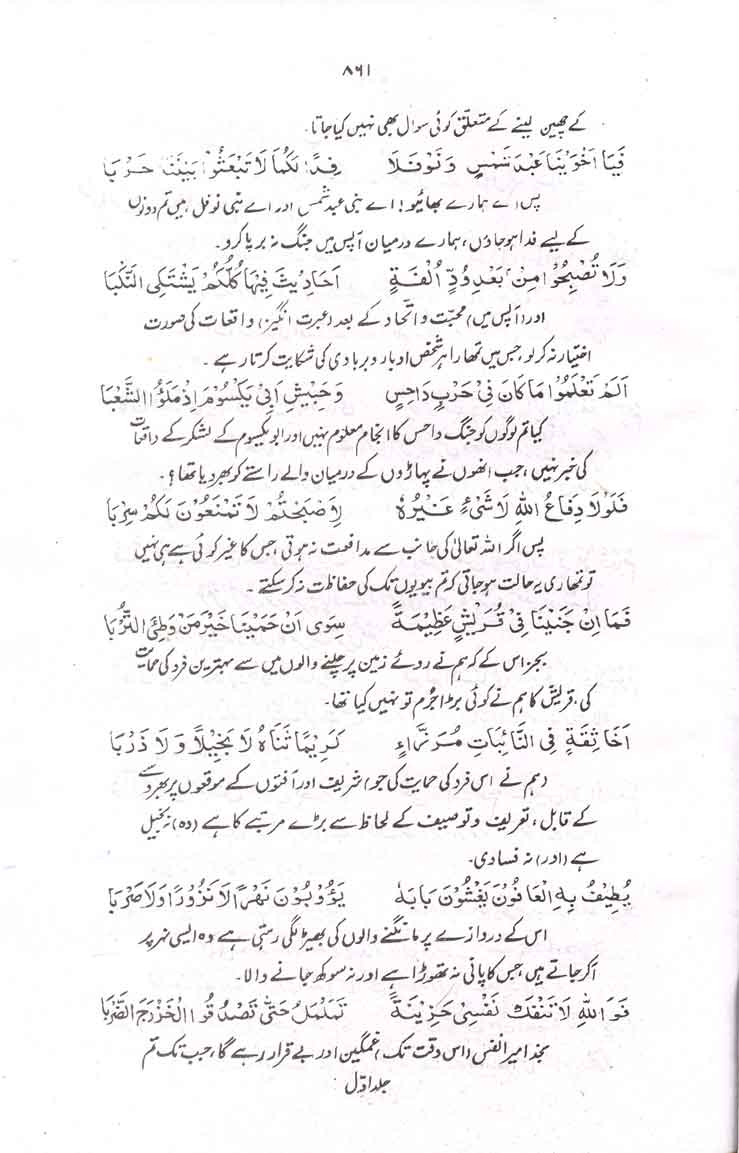 ۸۶۱
کے چھین لینے کے متعلق کوئی سوال بھی نہیں کیا جاتا۔
فَيَا أَخَوَيْنَا عَبْدَ شَمْسٍ وَنَوْفَلَا فِدًا لَكُمَا لَا تَبْعَثُوْا بَيْنَنَا حَرْبَا
پس اے ہمارے بھائیو! اے بنی عبد شمس اور اے بنی نوفل، میں تم دونوں
کے لیے فدا ہو جاؤں، ہمارے درمیان آپس میں جنگ نہ برپا کرو۔
وَلَا تُصْبِحُوْا مِنْ بَعْدِ وُدٍّ اُلْفَةٍ اَحَادِيْثَ فِيْهَا كُلُّكُمْ يَشْتَكِى النَّكْبَا
اور (آپس میں) محبت و اتحاد کے بعد (عبرت انگیز) واقعات کی صورت
اختیار نہ کر لو، جس میں تمھارا ہر شخص ادبار و بربادی کی شکایت کرتا رہے۔
اَلَمْ تَعْلَمُوْا مَا كَانَ فِيْ حَرْبِ دَاحِسٍ وَحَبِيْشِ اَبِيْ يَكْسُوْمَ اِذْ مَلَؤُا الشَّعْبَا
کیا تم لوگوں کو جنگ داحس کا انجام معلوم نہیں اور ابو یکسوم کے لشکر کے واقعات
کی خبر نہیں، جب انھوں نے پہاڑوں کے درمیان والے راستے کو بھر دیا تھا؟۔
فَلَوْلَا دِفَاعُ اللهِ لَا شَىْءَ غَيْرُهٗ لَاَصْبَحْتُمْ لَا تَمْنَعُوْنَ لَكُمْ سِرْبَا
پس اگر اللہ تعالیٰ کی جانب سے مدافعت نہ ہوتی، جس کا غیر کوئی ہے ہی نہیں
تو تمھاری یہ حالت ہو جاتی کہ تم بیویوں تک کی حفاظت نہ کر سکتے۔
فَمَا اِنْ جَنَيْنَا فِيْ قُرَيْشٍ عَظِيْمَةً سِوٰى اَنْ حَمَيْنَا خَيْرَ مَنْ وَطِئَ التُّرْبَا
بجز اس کے کہ ہم نے روئے زمین پر چلنے والوں میں سے بہترین فرد کی حمایت
کی، قریش کا ہم نے کوئی بڑا جرم تو نہیں کیا تھا۔
اَخَا ثِقَةٍ فِى النَّائِبَاتِ مُرَزَّاءٍ كَرِيْمًا ثَنَاهُ لَا بَخِيْلًا وَلَا ذَرْبَا
(ہم نے اس فرد کی حمایت کی جو) شریف اور آفتوں کے موقعوں پر بھروسے
کے قابل، تعریف و توصیف کے لحاظ سے بڑے مرتبے کا ہے (وہ) نہ بخیل
ہے (اور) نہ فسادی۔
يُطِيْفُ بِهِ الْعَافُوْنَ يَغْشَوْنَ بَابَهٗ يَؤُوْبُوْنَ نَهْرًا لَا نَزُوْرًا وَلَا صَرْبَا
اس کے دروازے پر مانگنے والوں کی بھیڑ لگی رہتی ہے وہ ایسی نہر پر
آ کر جاتے ہیں، جس کا پانی نہ تھوڑا ہے اور نہ سوکھ جانے والا۔
فَوَاللهِ لَا تَنْفَكُّ نَفْسِىْ حَزِيْنَةً تَمَلْمَلُ حَتّٰى تَصْدُقُوا الْخَزْرَجَ الضَّرْبَا
بخدا میرا نفس (اس وقت تک) غمگین اور بے قرار رہے گا، جب تک تم
جلد اوّل